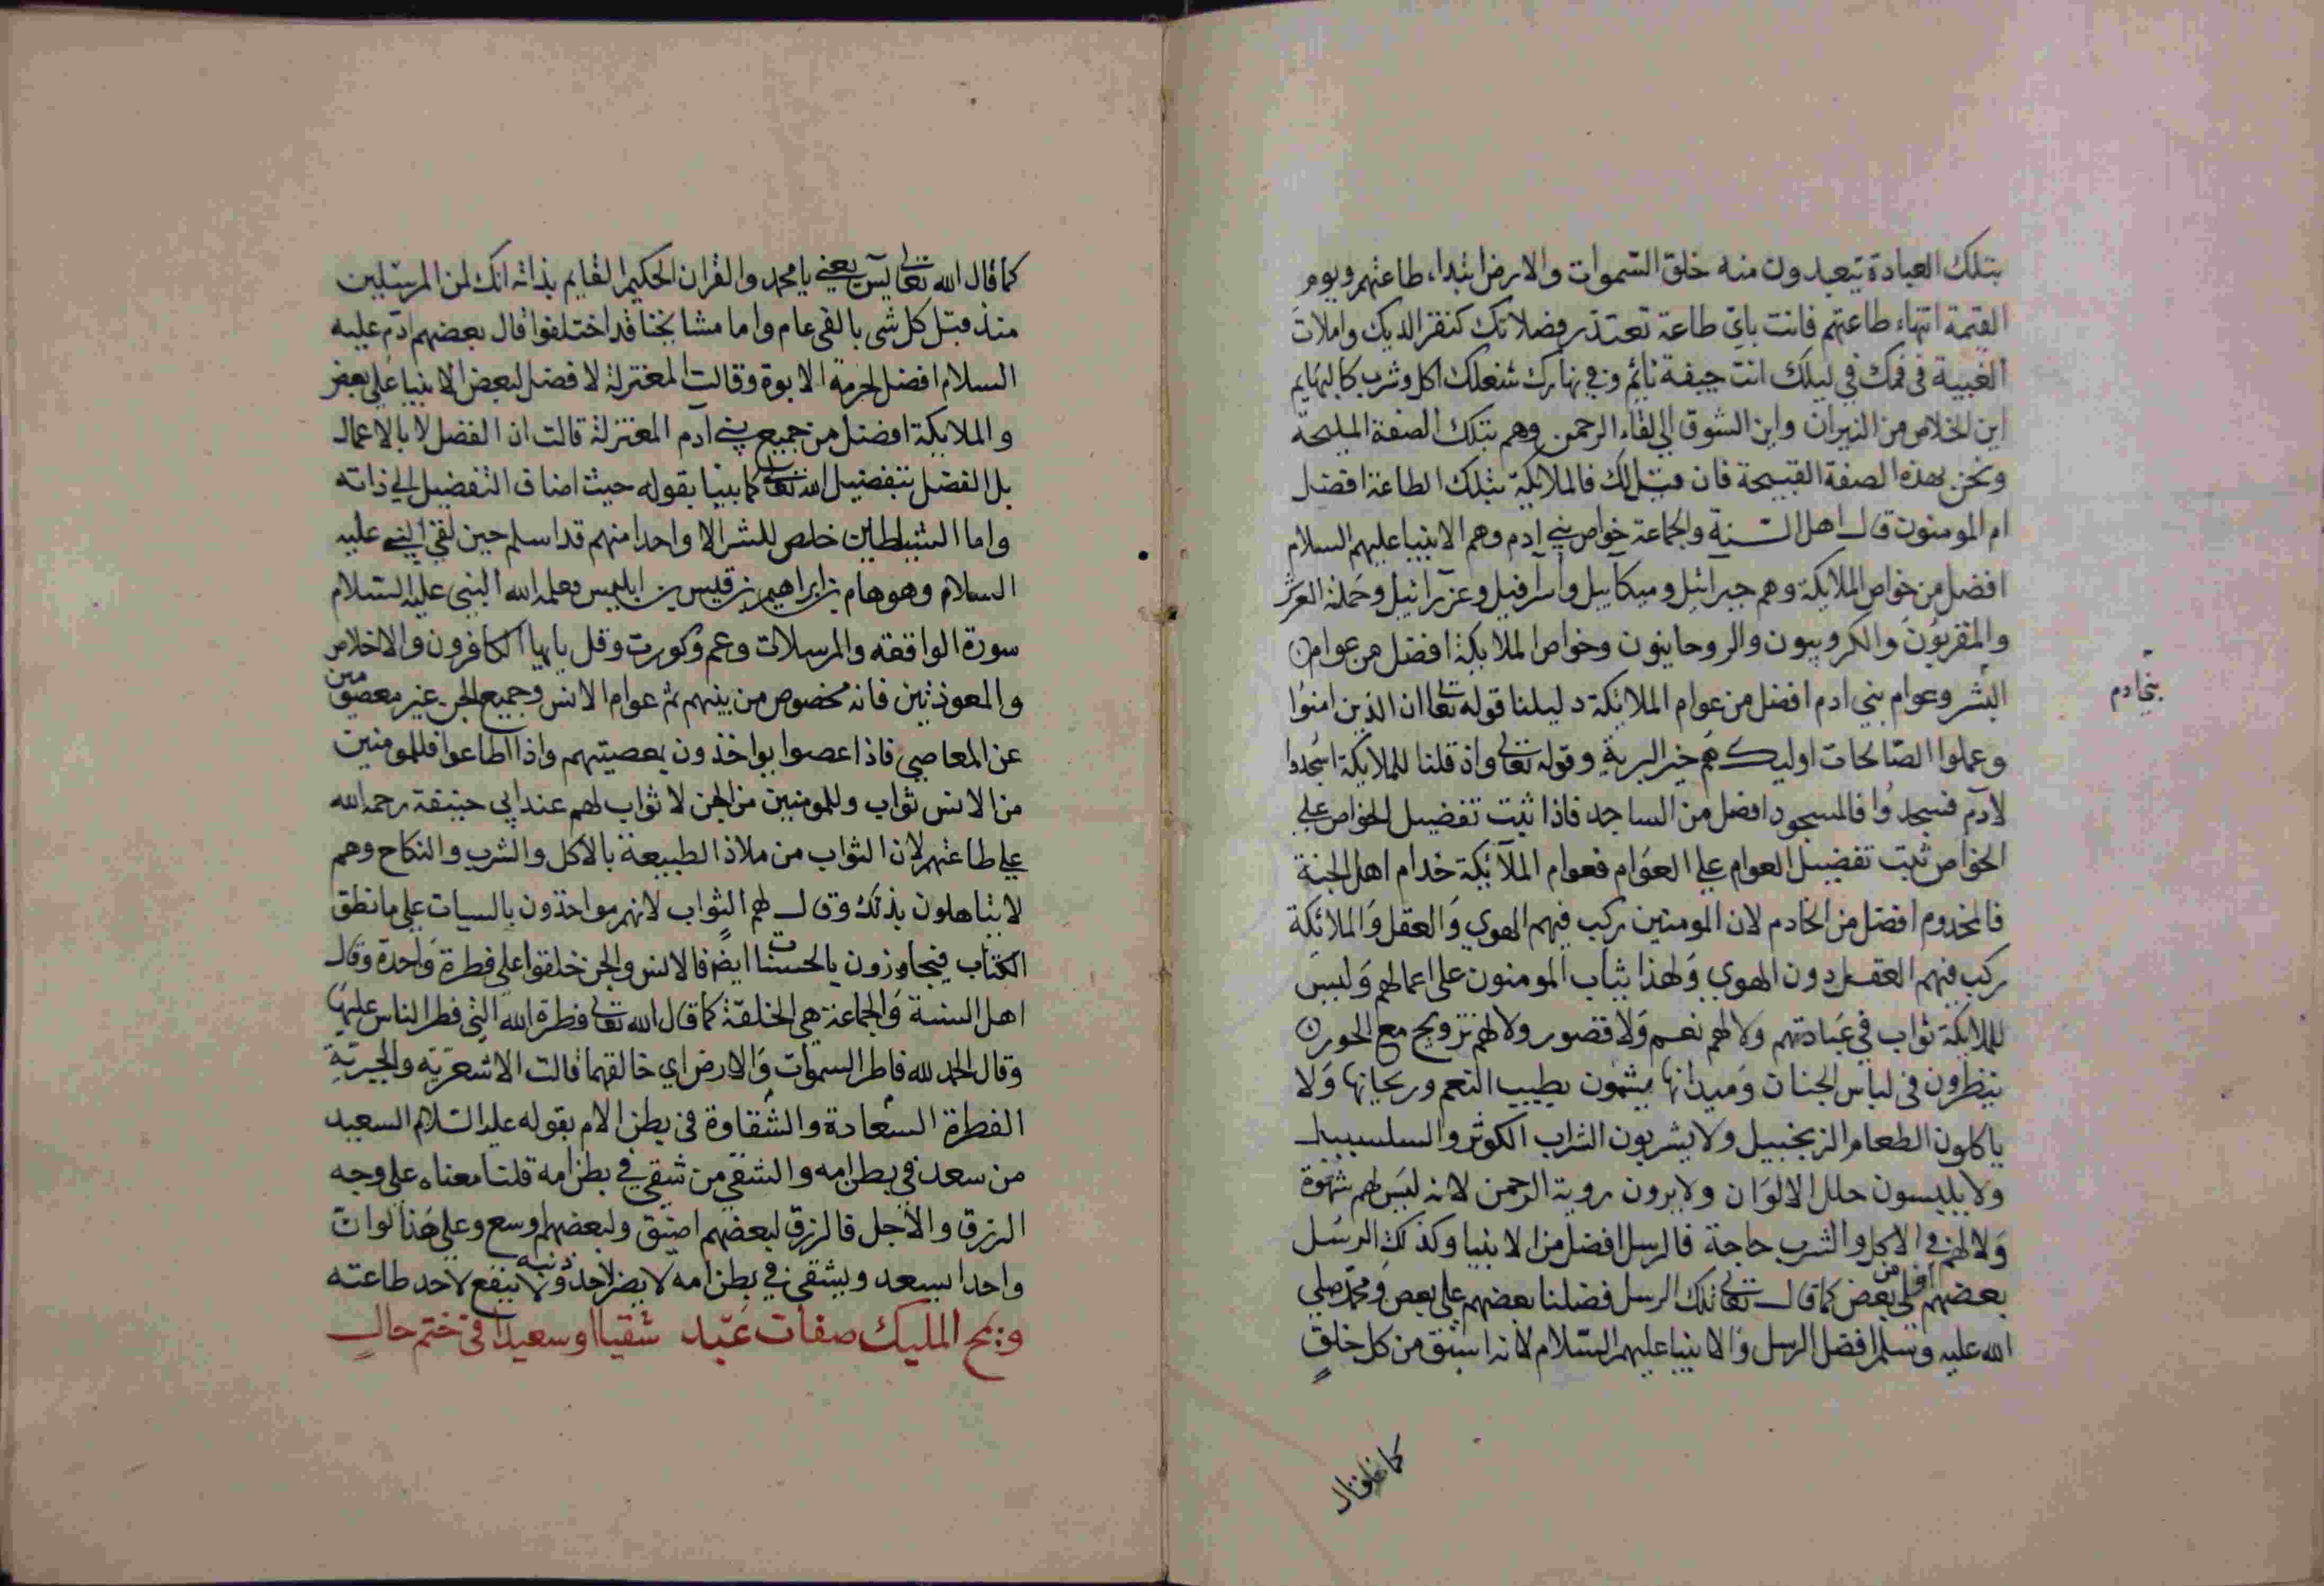 بتلك العبادة تيعبدون منه خلق السموات والارض ابتداء طاعتهم ويوم
القيمة انتهاء طاعتهم فانت باي طاعة تعتذر فضلاتك كنقر الديك واملات
الغيبة في فمك في ليلك انت جيفة نائم وفي نهارك شغلك اكل وشرب كالبهايم
اين الخلاص من النيران واين الشوق الي لقاء الرحمن وهم بتلك الصفة المليحة
ونحن بهذه الصفة القبيحة فان قيل لك فالملائكة بتلك الطاعة افضل
ام المومنون قال اهل السنة والجماعة خواص بني آدم وهم الانبيا عليهم السلام
افضل من خواص الملايكة وهم جبرائيل وميكاييل واسرافيل وعزرائيل وحملة العرش
والمقربون والكروبيون والروحانيون وخواص الملايكة افضل من عوام
البشر وعوام بني ادم افضل من عوام الملائكة دليلنا قوله تعالى ان الذين امنوا
بني ادم
وعملوا الصالحات اوليك هم خير البرية وقوله تعالى واذ قلنا للملايكة اسجدوا
لآدم فسجدوا فالمسجود افضل من الساجد فاذا ثبت تفضيل الخواص علي
الخواص ثبت تفضيل العوام علي العوام فعوام الملآئكة خدام اهل الجنة
فالمخدوم افضل من الخادم لان المومنين ركب فيهم الهوي والعقل والملائكة
ركب فيهم العقل دون الهوي ولهذا يثاب المومنون على اعمالهم وليس
للملايكة ثواب في عبادتهم ولا لهم نعيم ولا قصور ولا لهم تزويج مع الحور
ينظرون في لباس الجنان وميدانها يشمون بطيب النعم وريحانها ولا
ياكلون الطعام الزنجبيل ولا يشربون الشراب الكوثر والسلسبيل
ولا يلبسون حلل الالوان ولا يرون روية الرحمن لانه ليس لهم شهوة
ولا لهم في الاكل والشرب حاجة فالرسل افضل من الانبيا وكذلك الرسل
بعضهم افضل من بعض كما قال تعالى تلك الرسل فضلنا بعضهم علي بعض ومحمد صلي
الله عليه وسلم افضل الرسل والانبيا عليهم السلام لانه اسبق من كل خلق
كما قال
كما قال الله تعالى يس يعني يا محمد والقران الحكيم القايم بذاته انك لمن المرسلين
منذ قبل كل شي بالفي عام واما مشايخنا قد اختلفوا قال بعضهم ادم عليه
السلام افضل لحرمة الابوة وقالت المعتزلة لا فضل لبعض الانبيا علي بعض
والملايكة افضل من جميع بني آدم المعتزلة قالت ان الفضل لا بالاعمال
بل الفضل بتفضيل الله تعالى كما بينا بقوله حيث اضاف التفضيل الي ذاته
واما الشياطين خلص للشر الا واحدا منهم قد اسلم حين لقي النبي عليه
السلام وهو هام بن ابراهيم بن قيس بن ابليس فعلمه الله النبي عليه السلام
سورة الواقعه والمرسلات وعم وكورت وقل يا ايها الكافرون والاخلاص
والمعوذتين فانه مخصوص من بينهم ثم عوام الانس وجميع الجن غير معصومين
عن المعاصي فاذا عصوا يواخذون بمعصيتهم واذا اطاعوا فللمومنين
من الانس ثواب وللمومنين من الجن لا ثواب لهم عند ابي حنيفة رحمه الله
علي طاعتهم لان الثواب من ملاذ الطبيعة بالاكل والشرب والنكاح وهم
لا يتاهلون بذلك وقال لهم الثواب لانهم مواخذون بالسيات علي ما نطق
الكتاب فيجاوزون بالحسنات ايضا فالانس والجن خلقوا علي فطرة واحدة وقال
اهل السنة والجماعة هي الخلقة كما قال الله تعالى فطرة الله التي فطر الناس عليها
وقال الحمد لله فاطر السموات والارض اي خالقهما قالت الاشعرية والجبرية
الفطرة السعادة والشقاوة في بطن الام بقوله عليه السلام السعيد
من سعد في بطن امه والشقي من شقي في بطن امه قلنا معناه علي وجه
الرزق والاجل فالرزق لبعضهم اضيق ولبعضهم اوسع وعلي هذا لو ان
واحدا يسعد ويشقي في بطن امه لا يضر لاحد ذنبه ولا ينفع لاحد طاعته
ويمح المليك صفات عبد شقيا او سعيدا في ختم حال